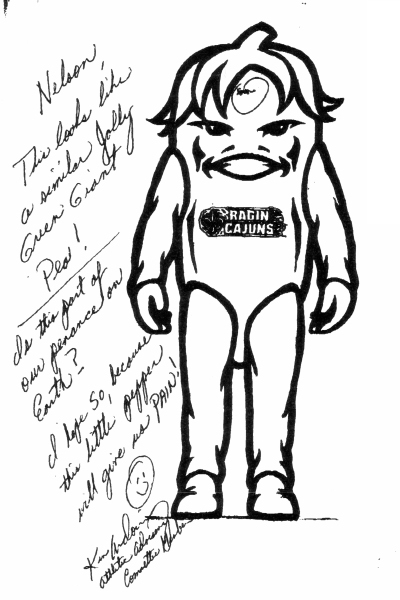 Nelson,
This looks like
a similar Jolly
Green Giant
Pea!
Is this part of
our penance on
Earth?
I hope so, because
this little pepper
will give us PAIN!
Athletic Advisory
Committee Member
RAGIN
CAJUNS